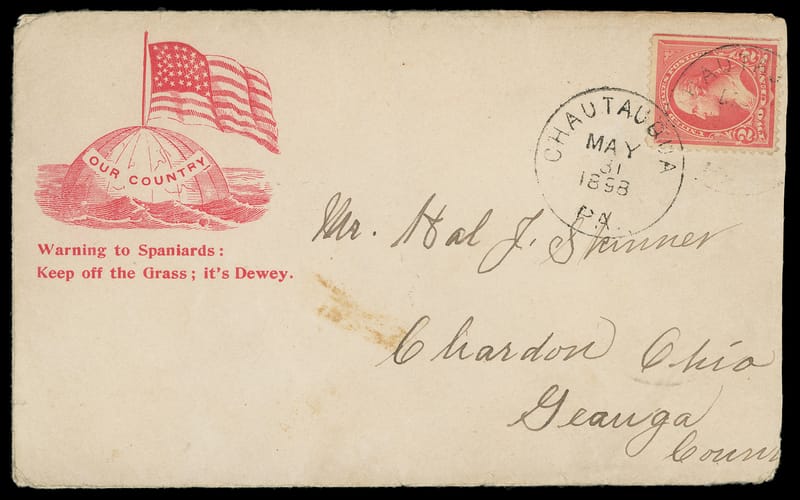 OUR COUNTRY
Warning to Spaniards:
Keep off the Grass; it's Dewey.
CHAUTAUQUA
MAY
31
1898
PA.
Mr. Hal J. Skinner
Chardon Ohio
Geauga
Coun